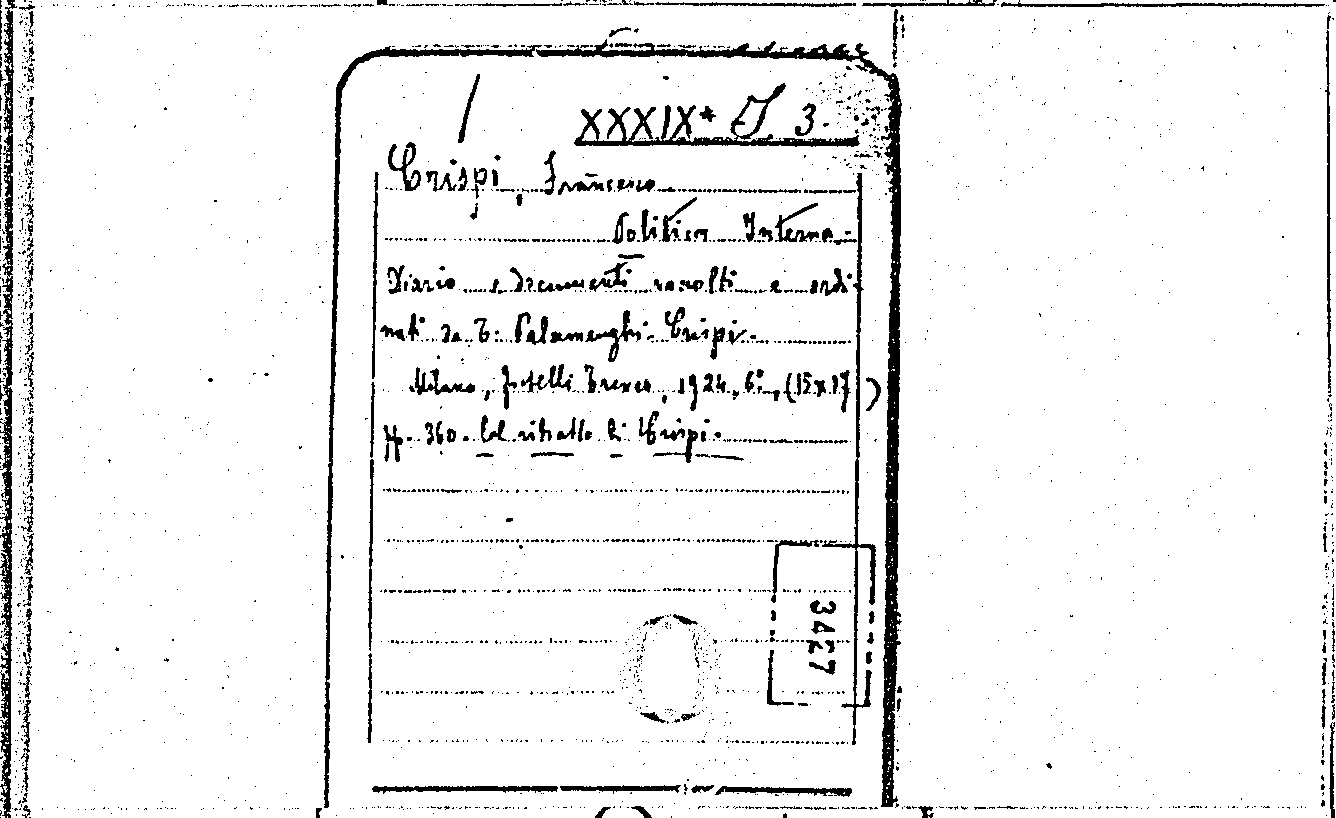 XXXIX* I 3.
Crispi, Francesco.
Politica Interna.
Diario e documenti raccolti e ordi-
nati da T. Palamenghi-Crispi.
Milano, fratelli Treves, 1924, 6°, (15x17)
pp. 360. Col ritratto di Crispi.
3427